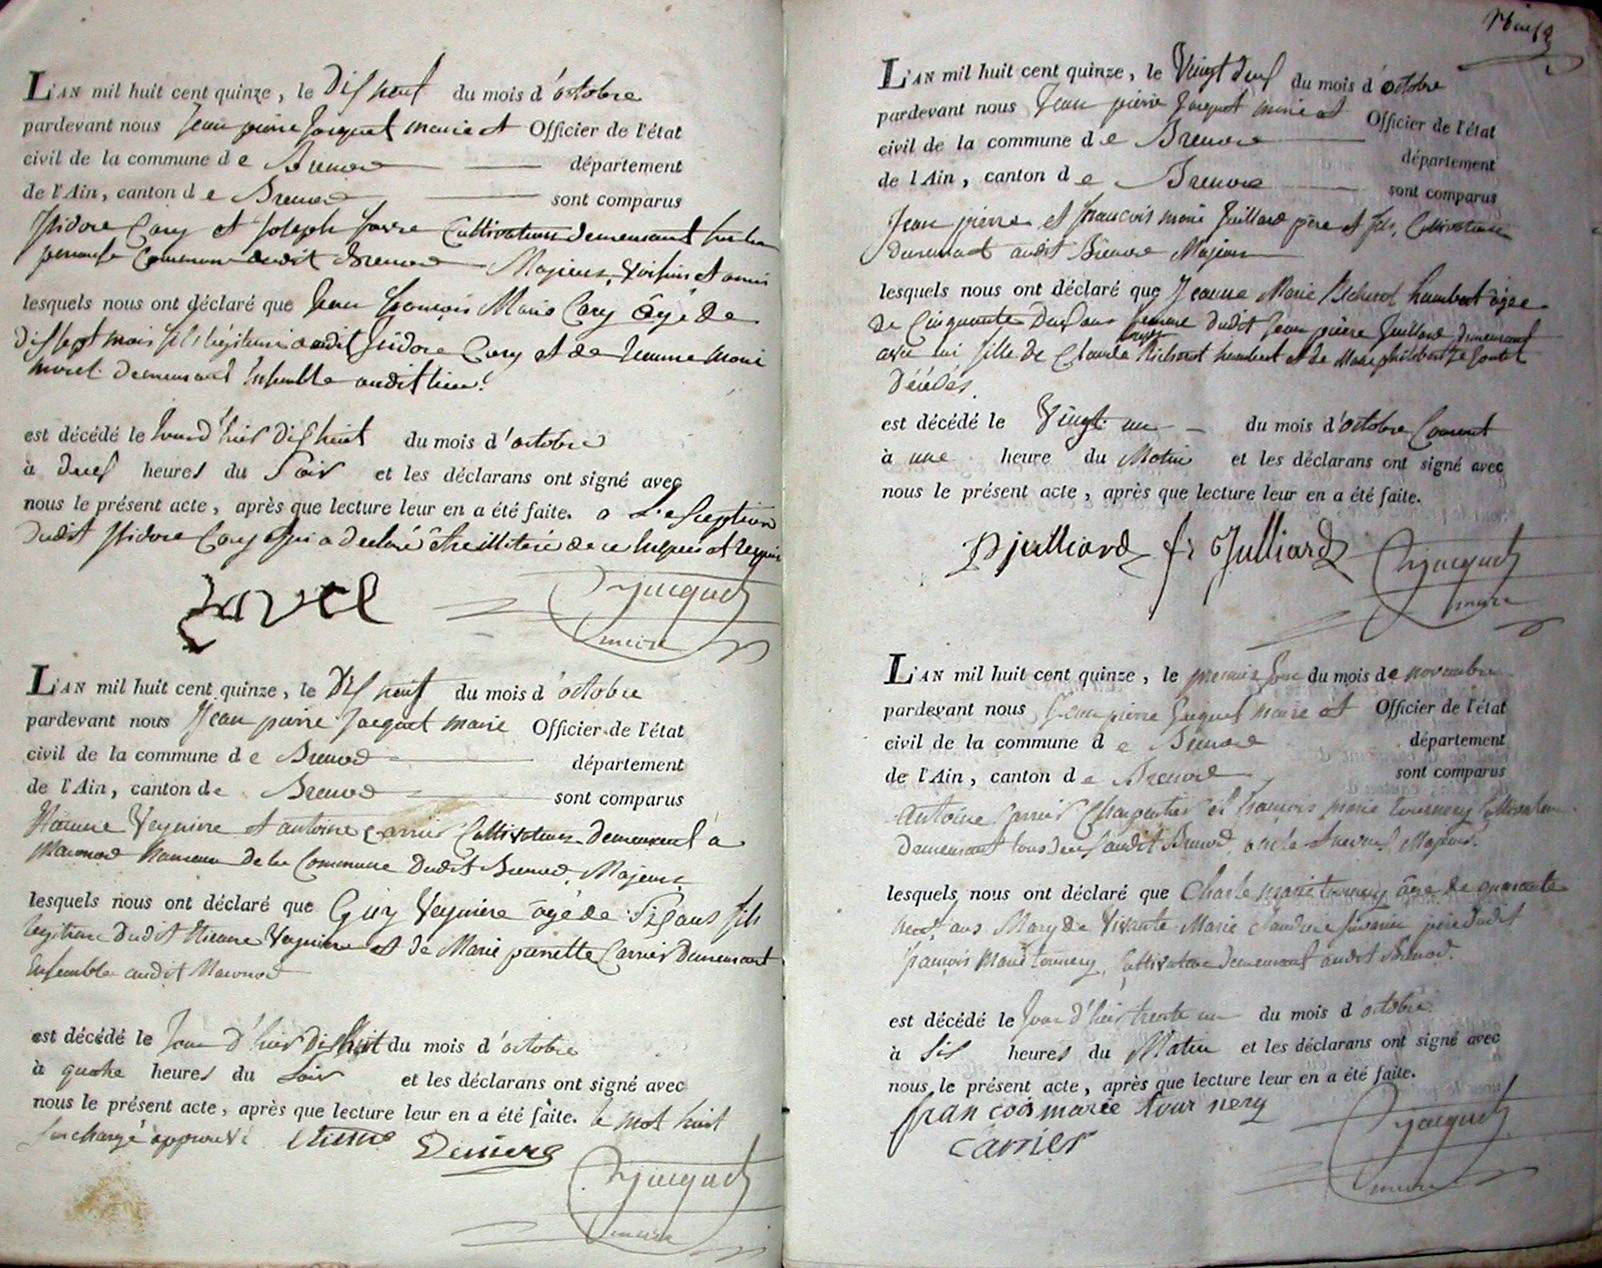 L'AN mil huit cent quinze, le Dix neuf du mois d'octobre
pardevant nous Jean pierre Jacquet maire et Officier de l'état
civil de la commune de Brenod département
de l'Ain, canton de Brenod sont comparus
Isidore Cary et Joseph favre Cultivateurs demeurant
Commune dudit Brenod Majeurs, voisins et amis
lesquels nous ont déclaré que Jean François Marie Cary âgé de
dix sept mois fils légitime audit Isidore Cary et de Jeanne Marie
demeurant Ensemble audit lieu
est décédé le Jour d'hier dix huit du mois d'octobre
à deux heures du Soir et les déclarans ont signé avec
nous le présent acte, après que lecture leur en a été faite. a L'exception
dudit Isidore Cary qui a déclaré être illitéré de ce enquis et requis
favre Jacquet
maire
L'AN mil huit cent quinze, le Dix neuf du mois d'octobre
pardevant nous Jean pierre Jacquet maire Officier de l'état
civil de la commune de Brenod département
de l'Ain, canton de Brenod sont comparus
Etienne et antoine Carrier Cultivateurs Demeurant à
hameau De la Commune Dudit Brenod, Majeurs
lesquels nous ont déclaré que Guy âgé de Six ans fils
légitime Dudit Etienne et de Marie pierrette Carrier Demeurant
Ensemble audit
est décédé le Jour d'hier dix huit du mois d'octobre
à quatre heures du Soir et les déclarans ont signé avec
nous le présent acte, après que lecture leur en a été faite. le mot huit
surchargé approuvé
Jacquet
maire
L'AN mil huit cent quinze, le Vingt deux du mois d'octobre
pardevant nous Jean pierre Jacquet maire et Officier de l'état
civil de la commune de Brenod département
de l'Ain, canton de Brenod sont comparus
Jean pierre et françois marie Juilliard père et fils, Cultivateurs
demeurant audit Brenod Majeurs
lesquels nous ont déclaré que Jeanne Marie humbert âgée
de Cinquante Deux ans femme dudit Jean pierre Juilliard demeurant
avec lui fille de Claude humbert et de Marie philiberte
Décédés.
est décédé le Vingt un du mois d'octobre Courant
à une heure du Matin et les déclarans ont signé avec
nous le présent acte, après que lecture leur en a été faite.
P juilliard fr Julliard Jacquet
maire
L'AN mil huit cent quinze, le premier Jour du mois de novembre
pardevant nous Jean pierre Jacquet maire et Officier de l'état
civil de la commune de Brenod département
de l'Ain, canton de Brenod sont comparus
antoine Carrier Charpentier et françois marie tournery Cultivateur
demeurant tous deux audit Brenod, Majeurs.
lesquels nous ont déclaré que Charle marie tournery âgé de quarante
neuf ans Mary de Vivante Marie Claudine père dudit
françois Marie tournery, Cultivateur demeurant audit Brenod.
est décédé le Jour d'hier trente un du mois d'octobre
à Six heures du Matin et les déclarans ont signé avec
nous le présent acte, après que lecture leur en a été faite.
francois marie tournery Jacquet
Carrier maire